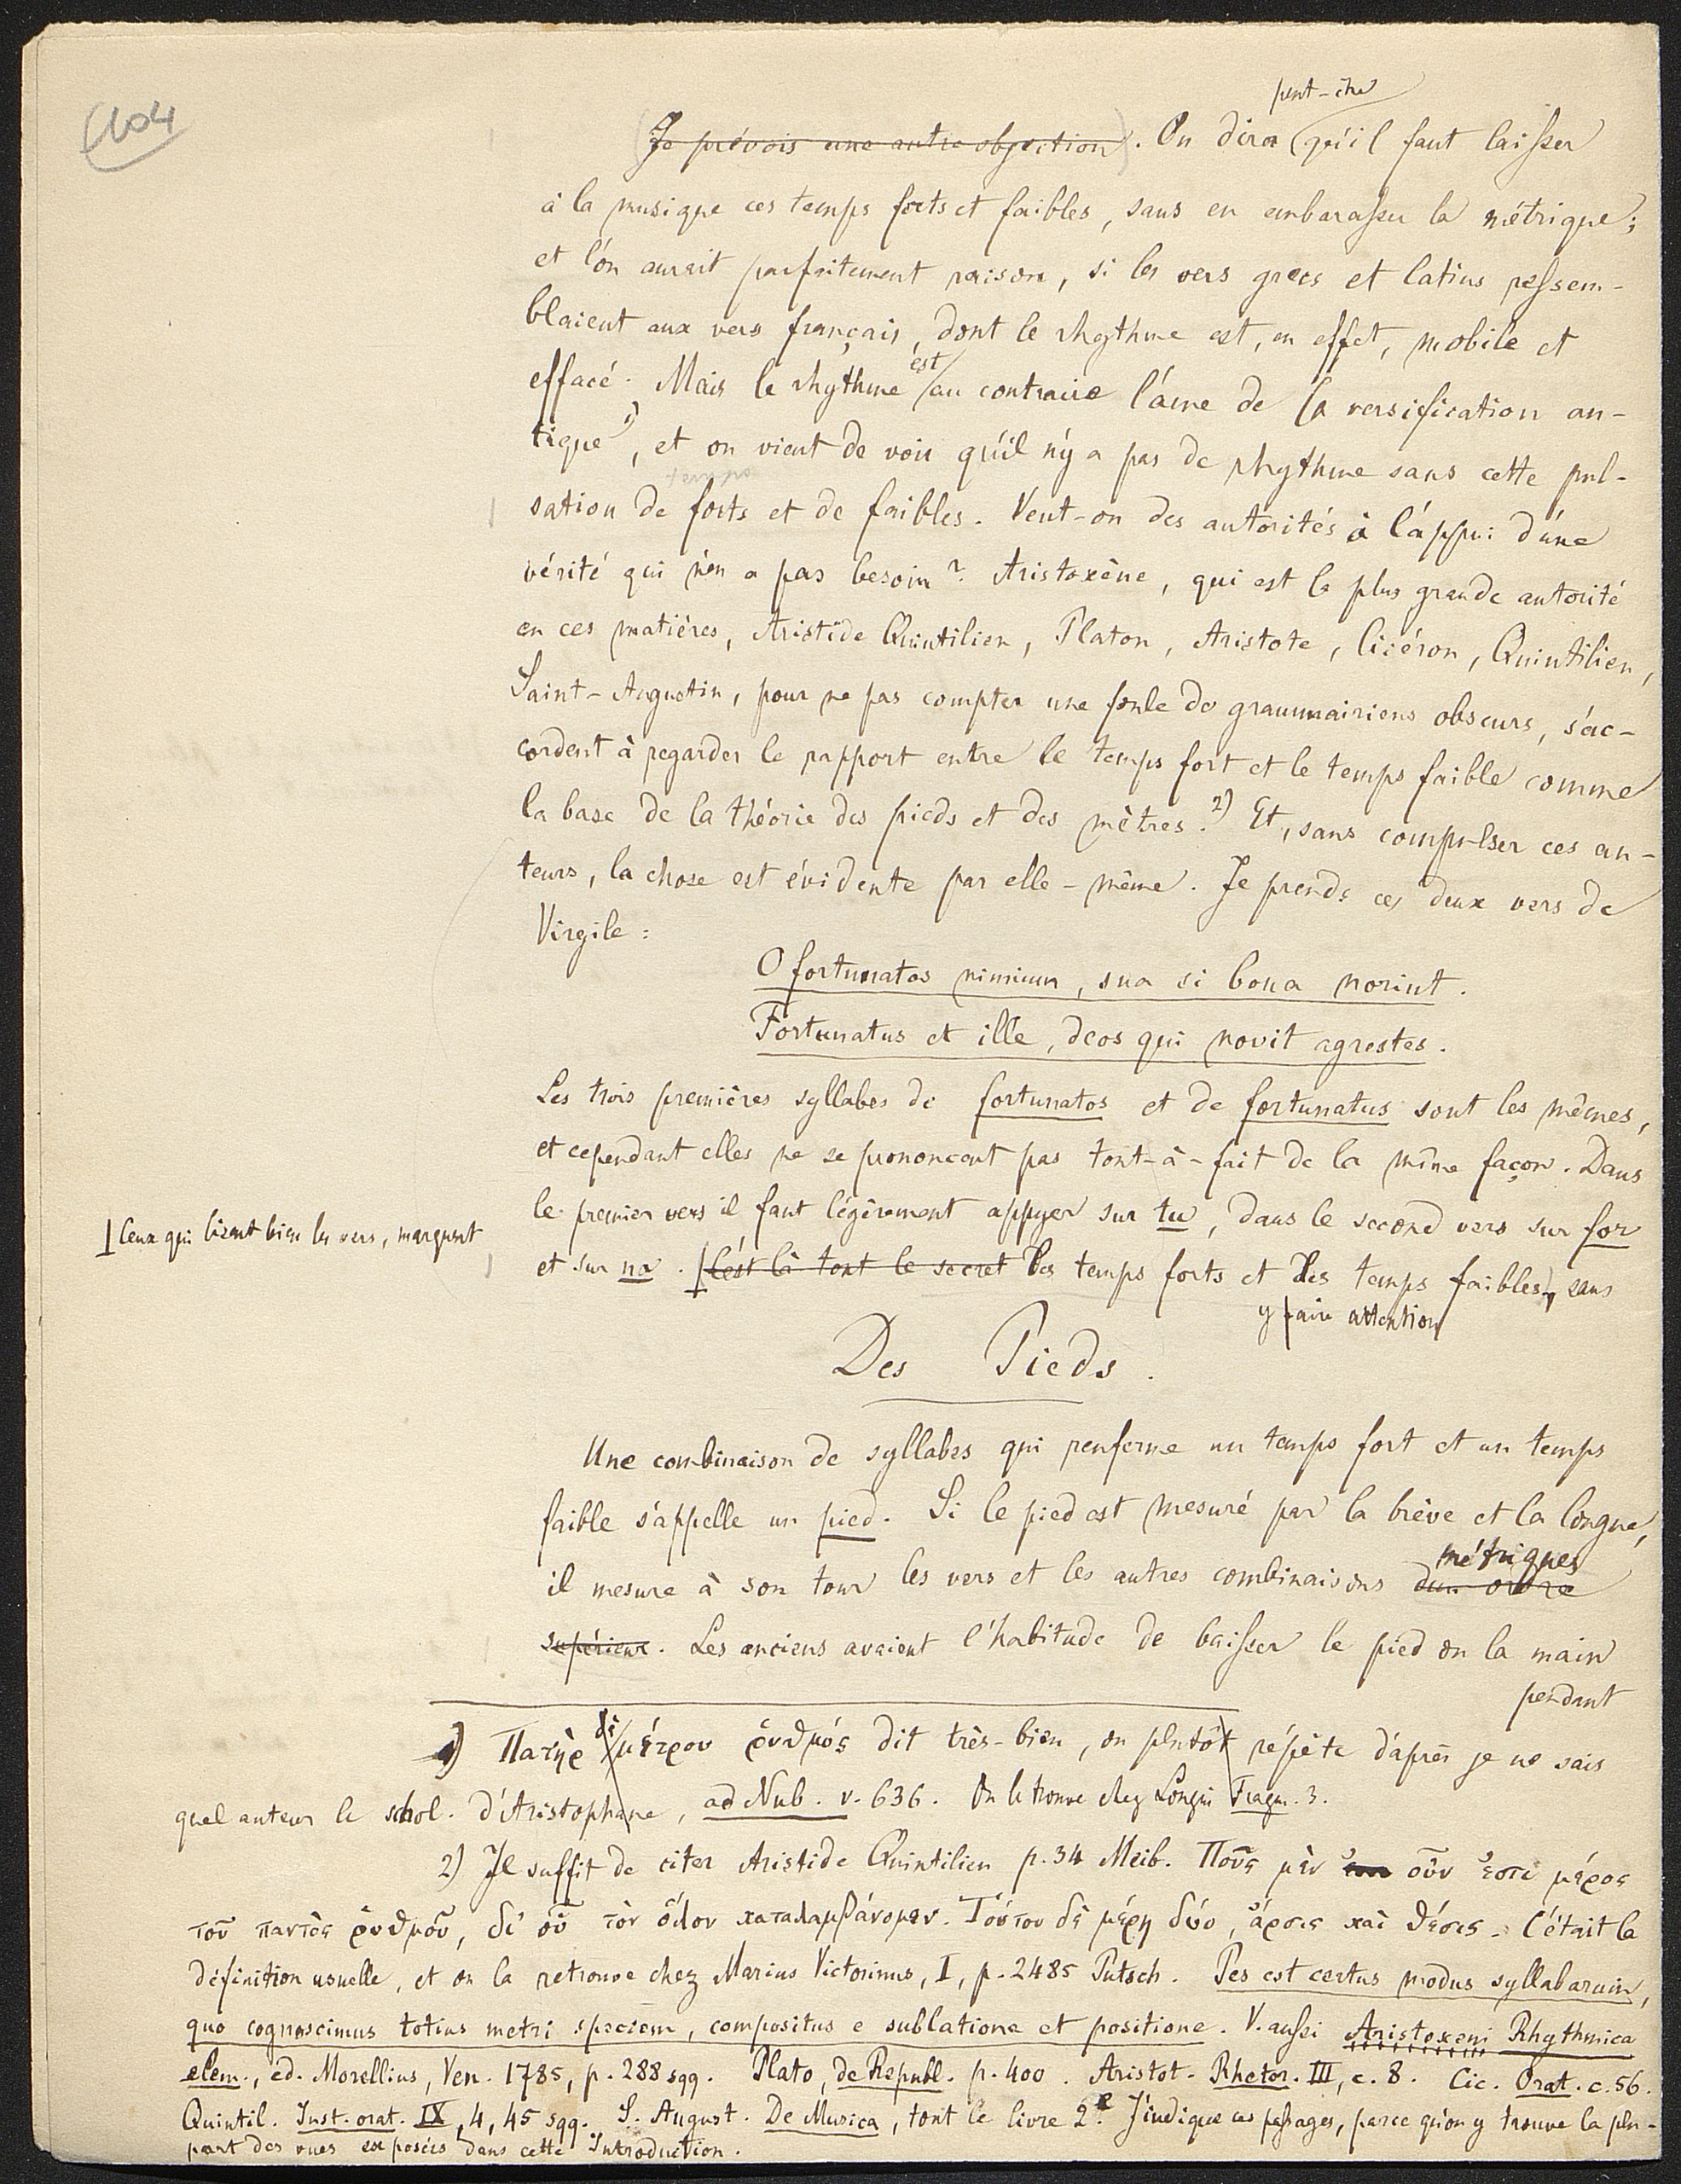 (104
peut-être
Je prévois une autre objection. On dira qu'il faut laisser
à la musique ces temps forts et faibles, sans en embarasser la métrique;
et l'on aurait parfaitement raison, si les vers grecs et latins ressem-
blaient aux vers français, dont le rhythme est, en effet, mobile et
effacé. Mais le rhythme est au contraire l'âme de la versification an-
tique 1), et on vient de voir qu'il n'y a pas de rhythme sans cette pul-
temps
sation de forts et de faibles. Veut-on des autorités à l'appui d'une
vérité qui n'en a pas besoin? Aristoxène, qui est la plus grande autorité
en ces matières, Aristide Quintilien, Platon, Aristote, Cicéron, Quintilien,
Saint-Augustin, pour ne pas compter une foule de grammairiens obscurs, s'ac-
cordent à regarder le rapport entre le temps fort et le temps faible comme
la base de la théorie des pieds et des mètres. 2) Et, sans compulser ces au-
teurs, la chose est évidente par elle-même. Je prends ces deux vers de
Virgile:
O fortunatos nimium, sua si bona norint.
Fortunatus et ille, deos qui novit agrestes.
Les trois premières syllabes de fortunatos et de fortunatus sont les mêmes,
et cependant elles ne se prononcent pas tout-à-fait de la même façon. Dans
le premier vers il faut légèrement appuyer sur tu, dans le second vers sur for
Ceux qui lisent bien les vers, marquent
et sur na. C'est là tout le secret des temps forts et des temps faibles, sans
y faire attention
Des Pieds.
Une combinaison de syllabes qui renferme un temps fort et un temps
faible s'appelle un pied. Si le pied est mesuré par la brève et la longue,
il mesure à son tour les vers et les autres combinaisons d'un ordre métriques
supérieur. Les anciens avaient l'habitude de baisser le pied ou la main
pendant
1) Πατὴρ δὲ μέτρου ῥυθμός dit très-bien, ou plutôt répète d'après je ne sais
quel auteur le schol. d'Aristophane, ad Nub. v. 636. On le trouve chez Longin Fragm. 3.
2) Il suffit de citer Aristide Quintilien p. 34 Meib. Ποῦς μὲν οὖν ἔστι μέρος
τοῦ παντὸς ῥυθμοῦ, δι' οὗ τὸν ὅλον καταλαμβάνομεν. Τούτου δὲ μέρη δύο, ἄρσις καὶ θέσις. C'était la
définition usuelle, et on la retrouve chez Marius Victorinus, I, p. 2485 Putsch. Pes est certus modus syllabarum,
quo cognoscimus totius metri speciem, compositus e sublatione et positione. V. aussi Aristoxeni Rhythmica
elem., ed. Morellius, Ven. 1785, p. 288 sqq. Plato, de Republ. p. 400. Aristot. Rhetor. III, c. 8. Cic. Orat. c. 56.
Quintil. Inst. orat. IX, 4, 45 sqq. S. August. De Musica, tout le livre 2e. J'indique ces passages, parce qu'on y trouve la plu-
part des vues exposées dans cette Introduction.